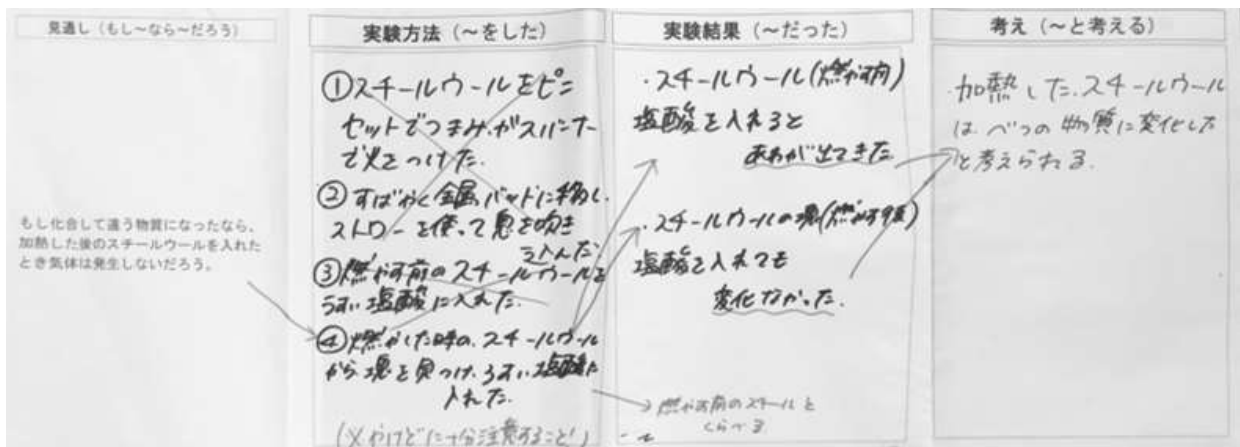 見通し（もし～なら～だろう）
もし化合して違う物質になったなら、
加熱した後のスチールウールを入れた
とき気体は発生しないだろう。
実験方法（～をした）
①スチールウールをピン
セットでつまみ、ガスバーナー
で火をつけた。
②すばやく金属バットに移し、
ストローを使って息を吹き
込んだ
③燃やす前のスチールウールを
うすい塩酸に入れた。
④燃やした時の、スチールウール
から、塊を見つけ、うすい塩酸に
入れた。
(※やけどに十分注意すること！)
実験結果（～だった）
・スチールウール(燃やす前)
塩酸を入れると
あわが出てきた
・スチールウールの塊(燃やす後)
塩酸を入れても
変化なかった.
→燃やす前のスチールと
くらべる
考え（～と考える）
・加熱した.スチールウール
は、べつの物質に変化した
と考えられる.